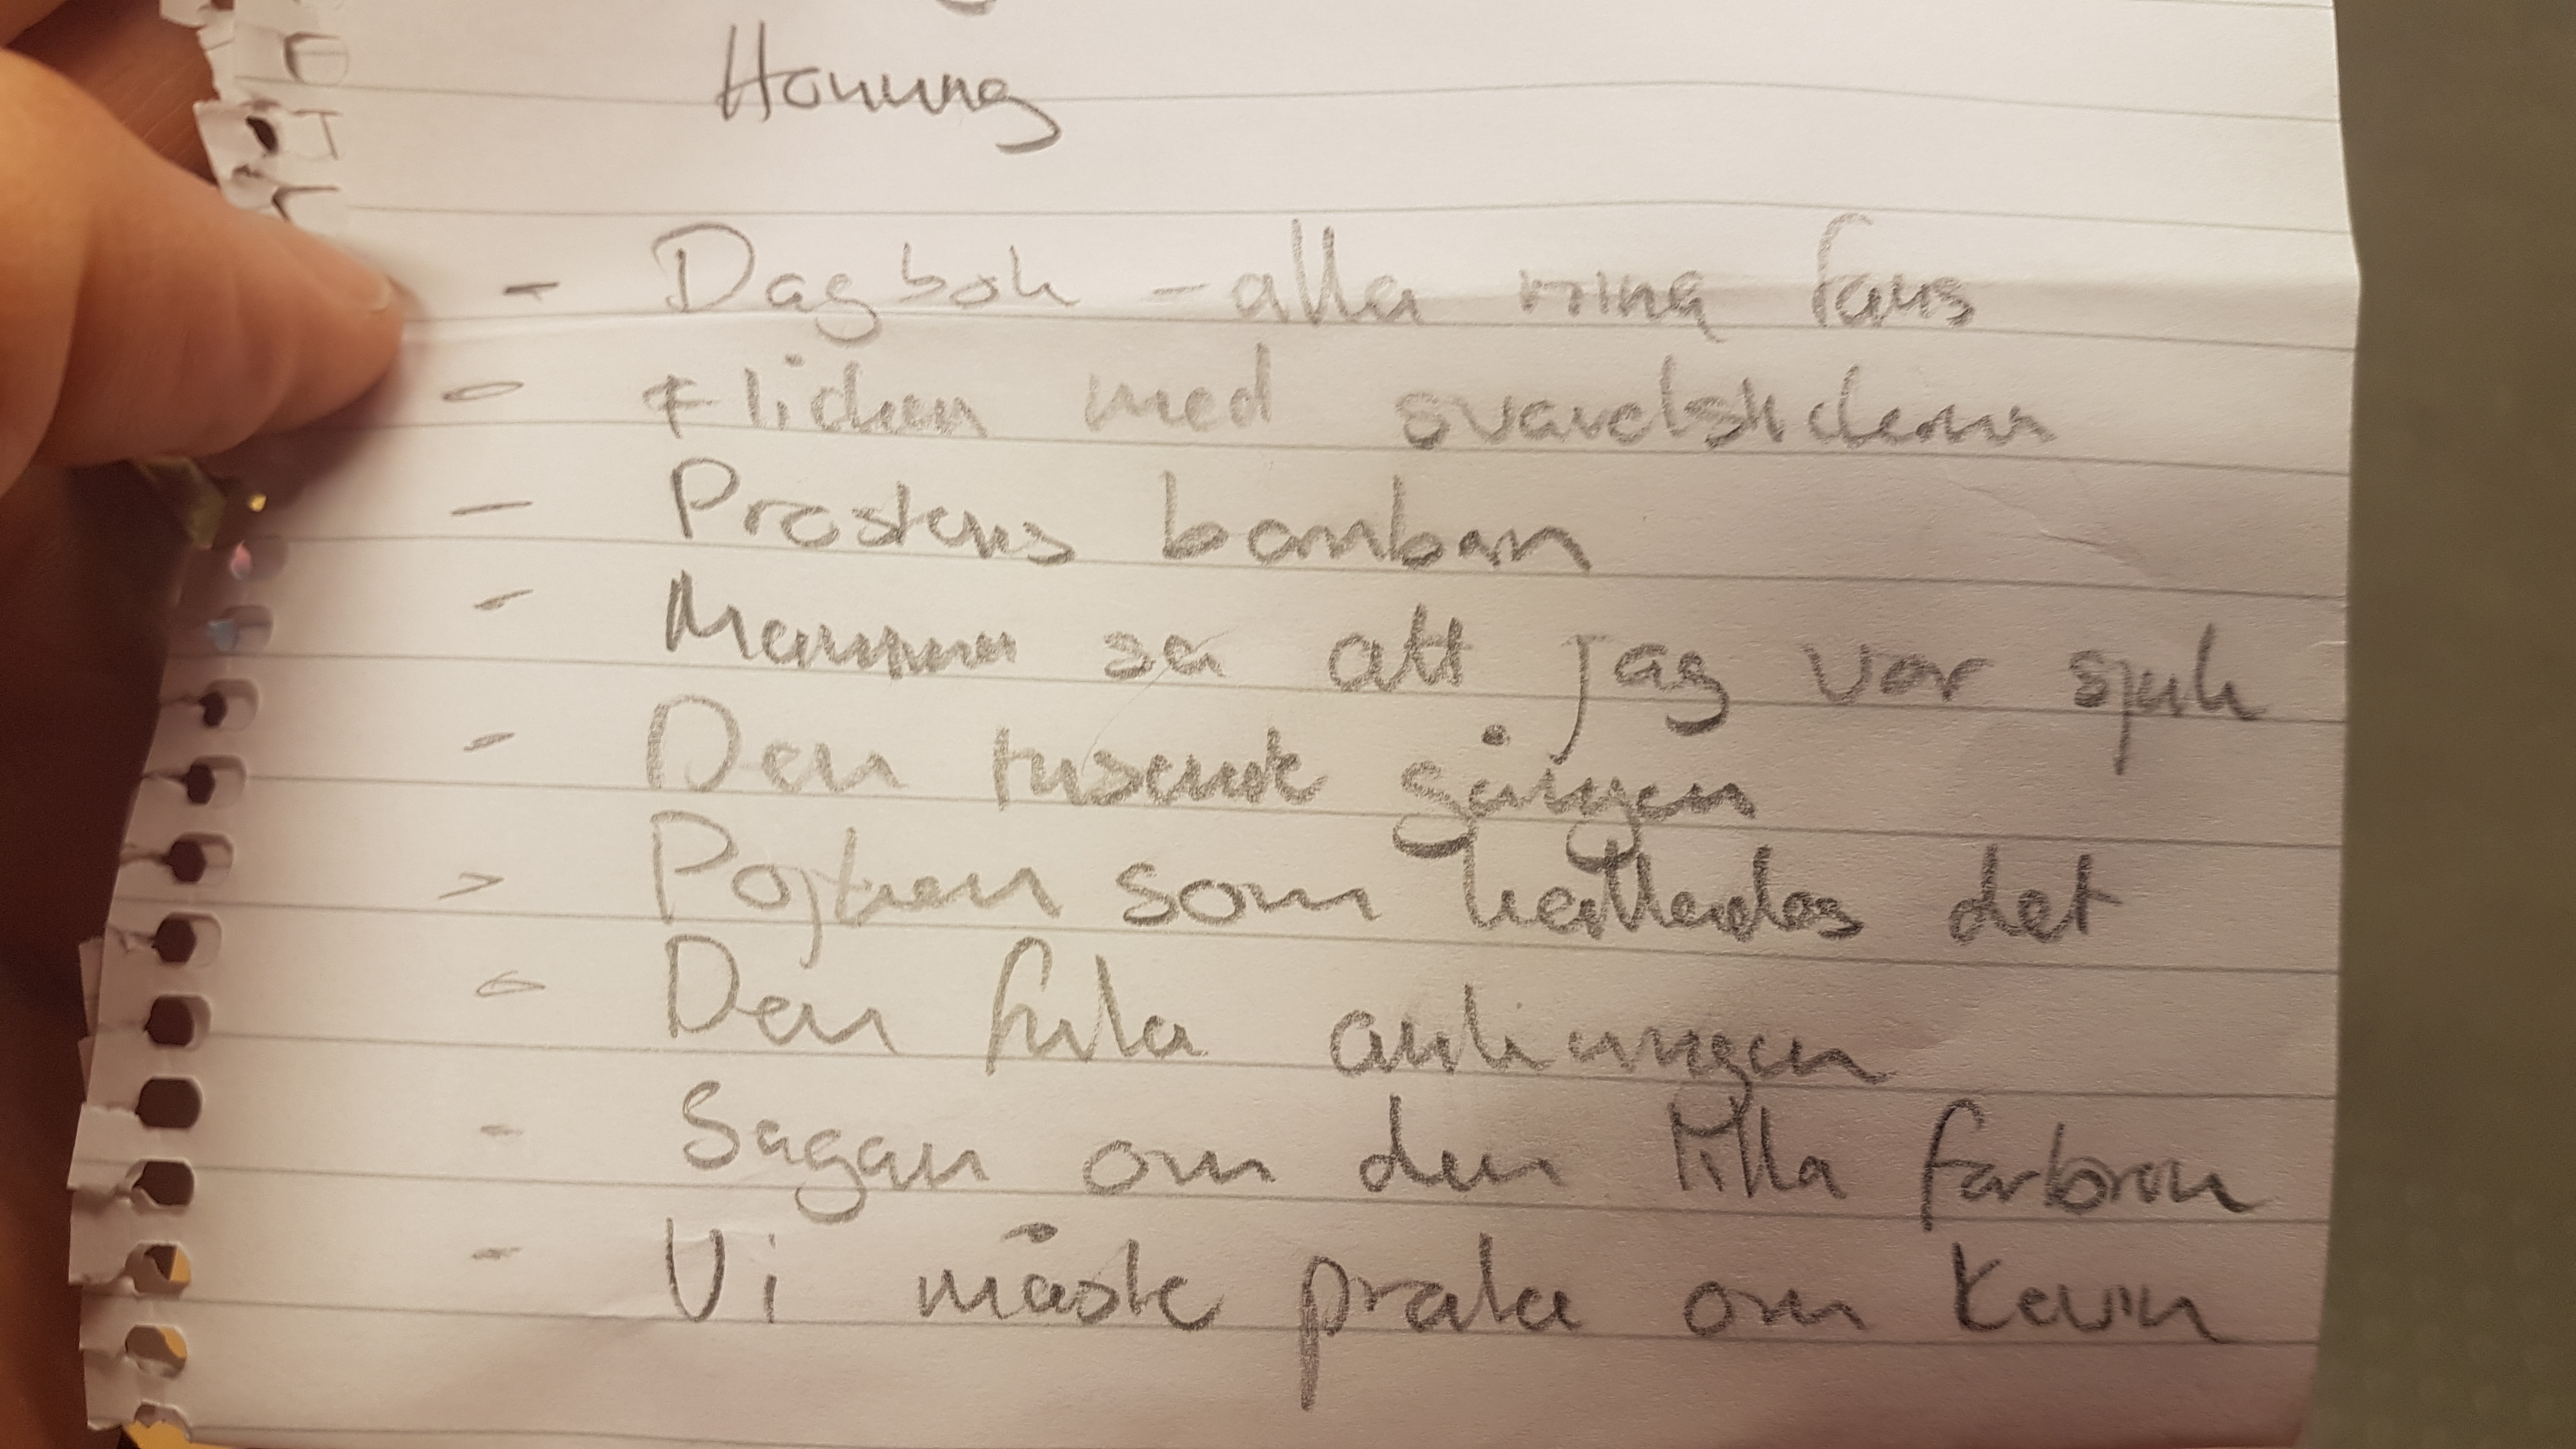 Honung
- Dagbok - alla mina fans
- Flickan med svavelstickorna
- Prostens barnbarn
- Mamma sa att jag var sjuk
- Den tusende gången
- Pojken som kallades det
- Den fula ankungen
- Sagan om den lilla farbrorn
- Vi måste prata om Kevin